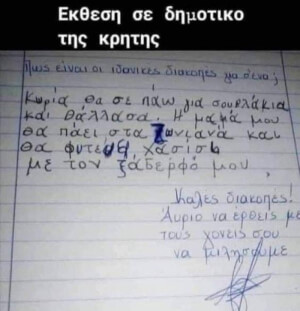 Εκθεση σε δημοτικο
της κρητης
Πως είναι οι ιδανικες διακοπές για σένα;
Κυρία θα σε πάω για σουβλάκια
και θάλλασα. Η μαμά μου
θα πάει στα ζωντανά και
θα φυτέψει χασίσι
με τον ξάδερφό μου,
Καλες διακοπές!
Αυριο να έρθεις με
τους γονείς σου
να μιλησουμε